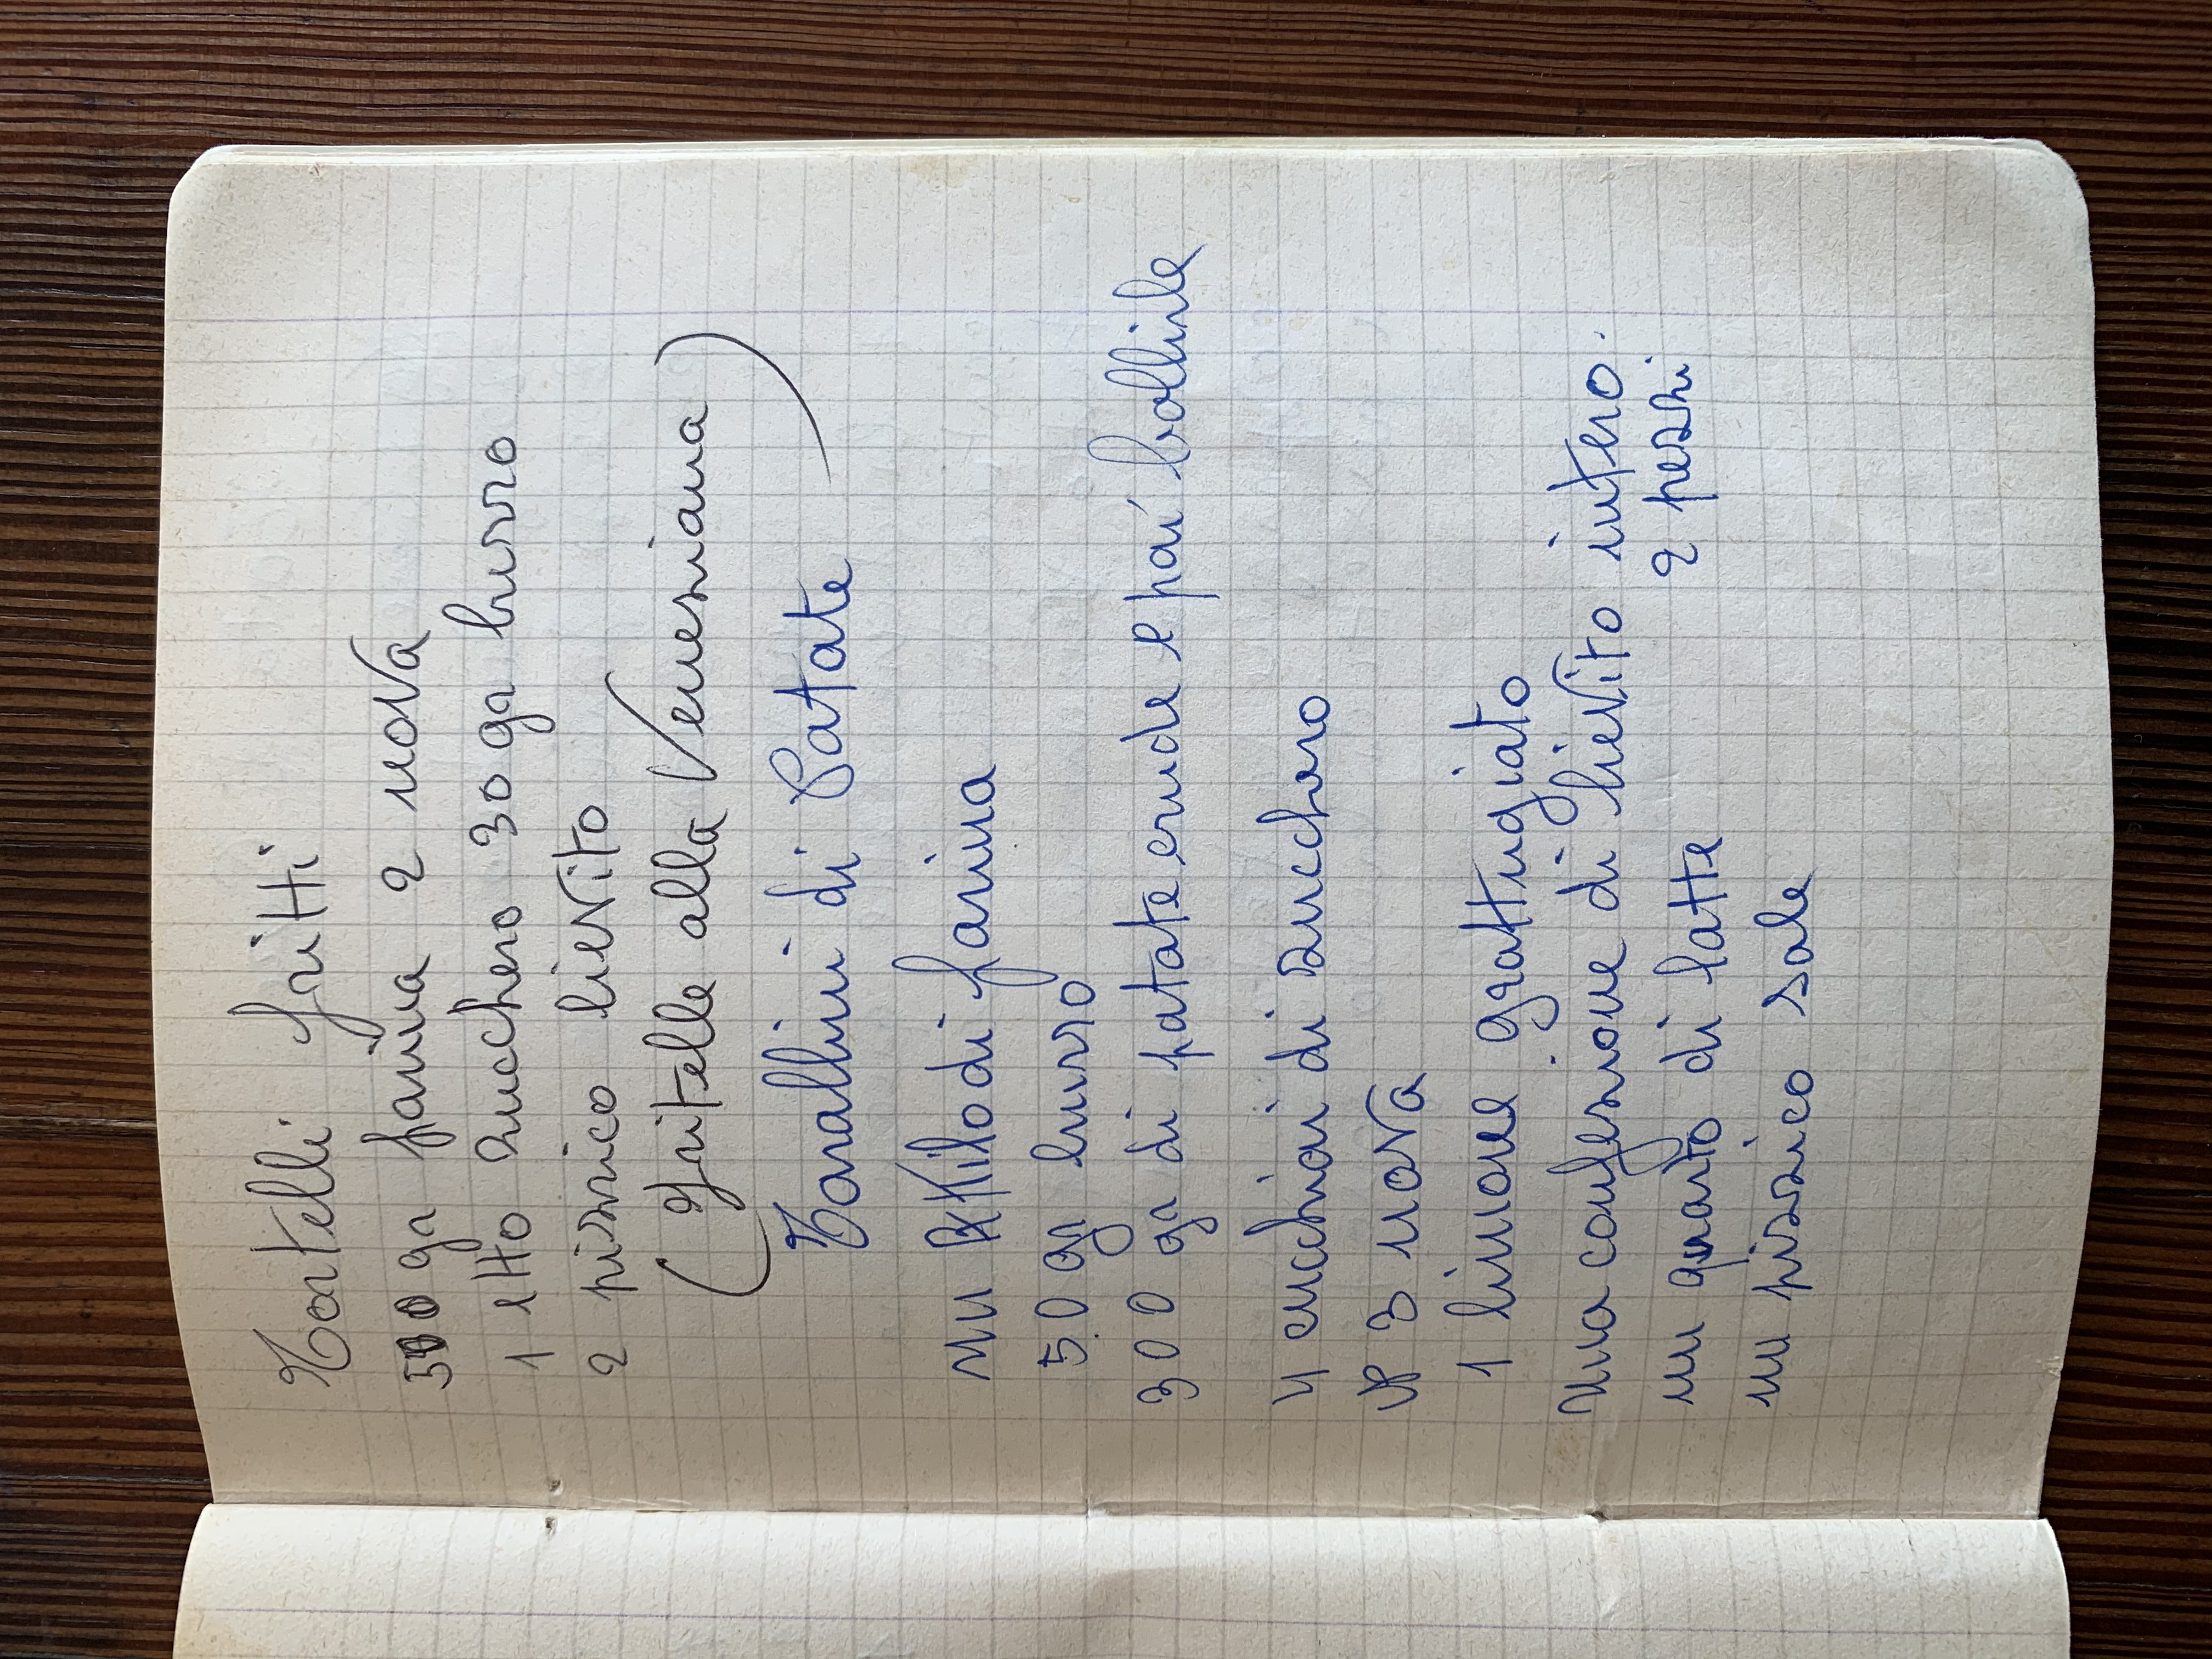 Tortelli fritti
500 gr farina 2 uova
1 etto zucchero 30 gr burro
2 pizzico lievito
(Fritelle alla Veneziana)
Tarallini di Patate
un Kilo di farina
50 gr burro
300 gr di patate crude e poi bollirle
4 cucchiai di zucchero
N° 3 uova
1 limone grattugiato
una confezione di lievito intero.
2 pezzi
un quarto di latte
un pizzico sale